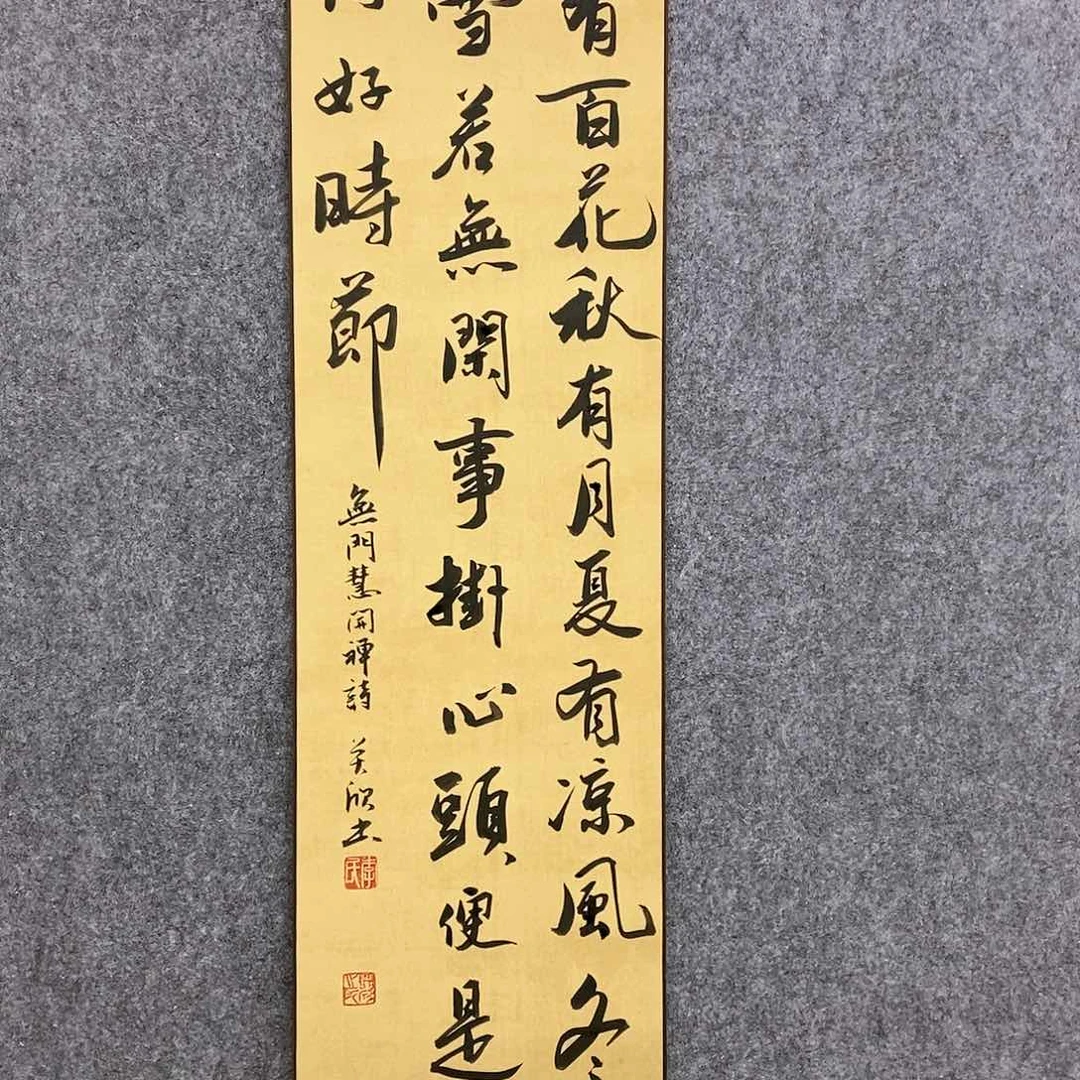 有百花秋有月夏有凉風冬
雪若無閑事掛心頭便是
好時節
無門慧開禪詩
欣書